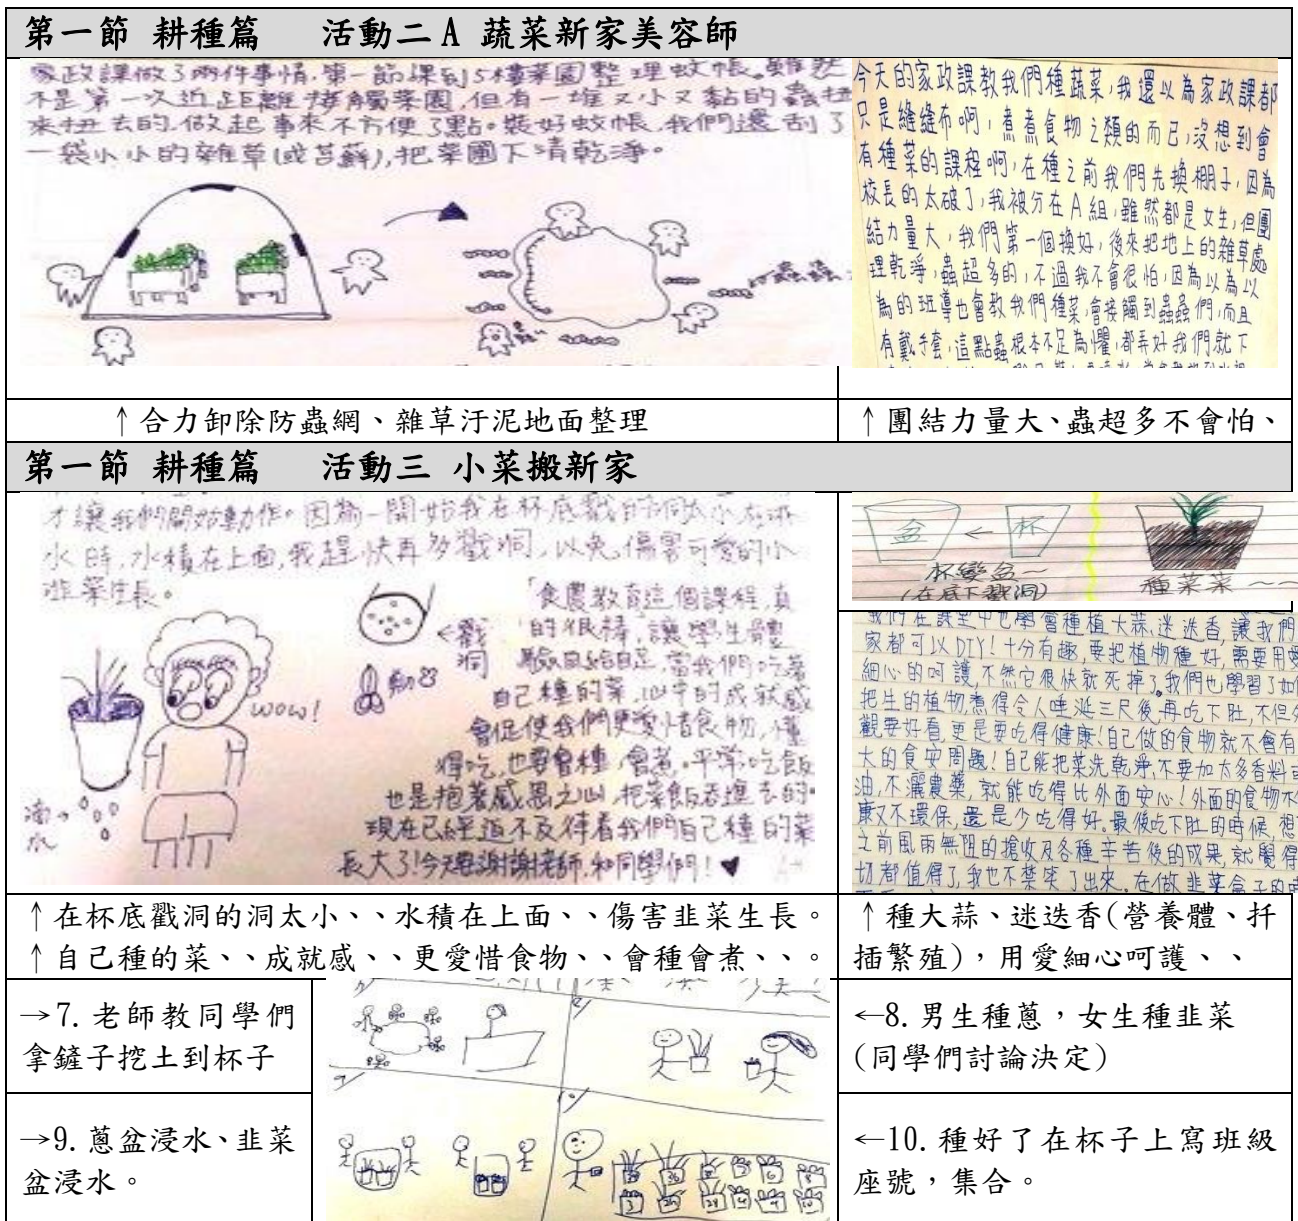 第一節 耕種篇　活動二A 蔬菜新家美容師
家政課做了兩件事情.第一節課到5樓菜園整理蚊帳。雖然
不是第一次近距離接觸菜園,但有一堆又小又黏的蟲扭
來扭去的.做起事來不方便了點。裝好蚊帳,我們還刮了
一袋小小的雜草(或苔蘚),把菜園下清乾淨。
今天的家政課教我們種蔬菜,我還以為家政課都
只是縫縫布啊,煮煮食物之類的而已,沒想到會
有種菜的課程啊,在種之前我們先換棚子,因為
校長的太破了,我被分在A組,雖然都是女生,但團
結力量大,我們第一個換好,後來把地上的雜草處
理乾淨,蟲超多的,不過我不會很怕,因為以為以
為的班導也會教我們種菜,會接觸到蟲蟲們,而且
有戴手套,這點蟲根本不足為懼,都弄好我們就下
↑合力卸除防蟲網、雜草汙泥地面整理
↑團結力量大、蟲超多不會怕、
第一節 耕種篇　活動三 小菜搬新家
才讓我們開始動作。因為一開始我在杯底戳的洞太小,在
水時,水積在上面,我趕快再多戳洞,以免傷害可愛的小
韭菜生長。
戳
洞
wow!
水
「食農教育這個課程,真
的很棒,讓學生體
驗自給自足,當我們吃著
自己種的菜,心中的成就感
會促使我們更愛惜食物,懂
得吃,也要會種,會煮。平常吃飯
也是抱著感恩之心,把菜飯吞進去的。
現在已經迫不及待看我們自己種的菜
長大了!今天要謝謝老師,和同學們!♥
盆 ← 杯
杯變盆~
(在底下戳洞)
種菜菜~~
我們在課堂中也學會種植大蒜,迷迭香,讓我們
家都可以DIY!十分有趣,要把植物種好,需要用愛
細心的呵護,不然它很快就死掉了,我們也學習了如
把生的植物,煮得令人唾涎三尺後,再吃下肚,不但
觀要好看,更是要吃得健康!自己做的食物就不會有
大的食安問題!自己能把菜洗乾淨,不要加太多香料
油,不灑農藥,就能吃得比外面安心!外面的食物不
康又不環保,還是少吃得好。最後吃下肚的時候,想
之前風雨無阻的搶收及各種辛苦後的成果,就覺得
切都值得了,我也不禁笑了出來。在做韭菜盒子的
↑在杯底戳洞的洞太小、、水積在上面、、傷害韭菜生長。
↑自己種的菜、、成就感、、更愛惜食物、、會種會煮、、。
↑種大蒜、迷迭香(營養體、扦
插繁殖),用愛細心呵護、、
→7.老師教同學們
拿鏟子挖土到杯子
←8.男生種蔥,女生種韭菜
(同學們討論決定)
→9.蔥盆浸水、韭菜
盆浸水。
←10.種好了在杯子上寫班級
座號,集合。